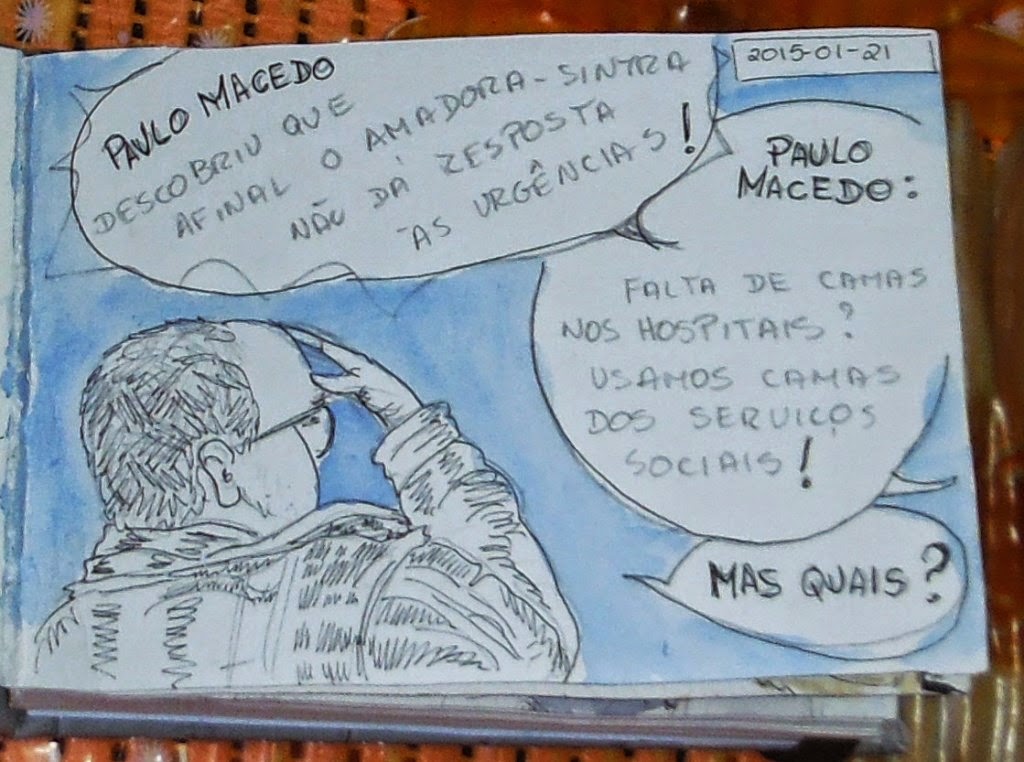 PAULO MACEDO
DESCOBRIU QUE
AFINAL O AMADORA-SINTRA
NÃO DÁ RESPOSTA
ÀS URGÊNCIAS!
2015-01-21
PAULO
MACEDO:
FALTA DE CAMAS
NOS HOSPITAIS?
USAMOS CAMAS
DOS SERVIÇOS
SOCIAIS!
MAS QUAIS?